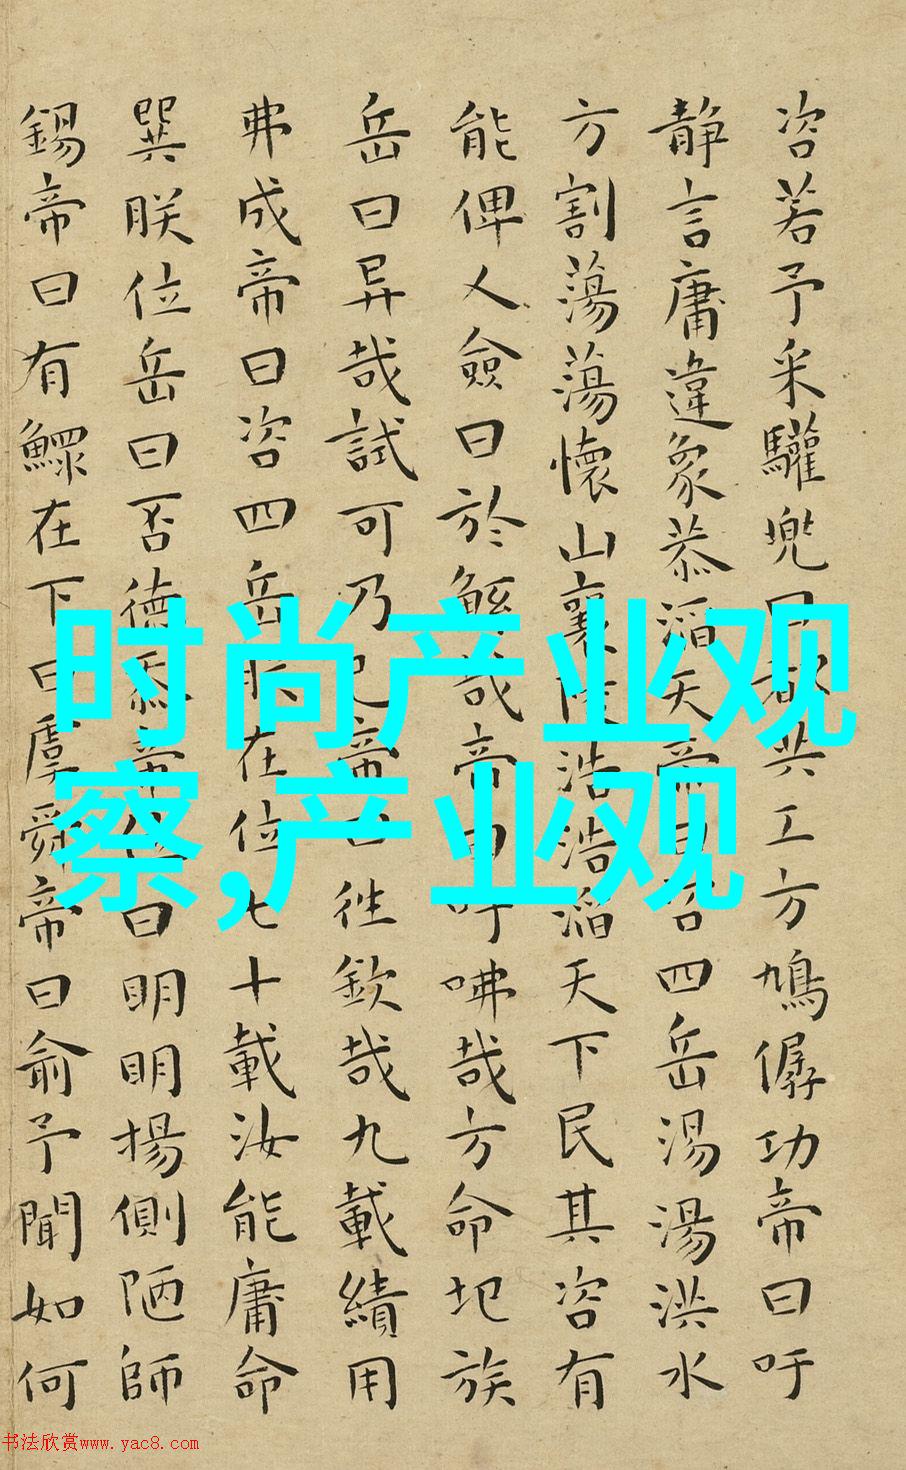 咨若予采驩兜曰都共工方鳩僝功帝曰吁
静言庸違象恭滔天帝曰咨四岳湯湯洪水
方割蕩蕩懷山襄陵浩浩滔天下民其咨有
能俾人僉曰於鯀哉帝曰吁咈哉方命圮族
岳曰异哉試可乃已帝曰往欽哉九載績用
弗成帝曰咨四岳朕在位七十載汝能庸命
巽朕位岳曰否德忝帝位曰明明揚側陋師
錫帝曰有鰥在下曰虞舜帝曰俞予聞如何
时尚产业观
察,产业观
书法欣赏www.yac8.com